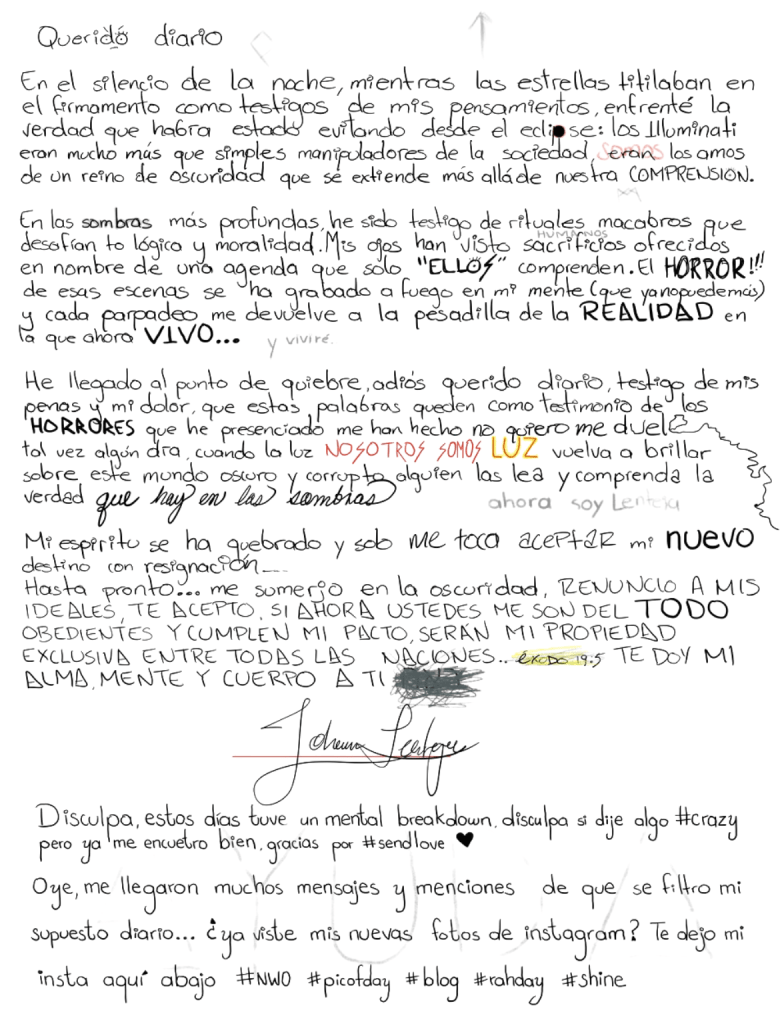 Querido diario
En el silencio de la noche, mientras las estrellas titilaban en
el firmamento como testigos de mis pensamientos, enfrenté la
verdad que había estado evitando desde el eclipse: los Illuminati
eran mucho más que simples manipuladores de la sociedad, somos eran los amos
de un reino de oscuridad que se extiende más allá de nuestra COMPRENSIÓN.
En las sombras más profundas, he sido testigo de rituales macabros que
HUMANOS
desafían to lógica y moralidad. Mis ojos han visto sacrificios ofrecidos
en nombre de una agenda que solo "ELLOS" comprenden. El HORROR!!!
de esas escenas se ha grabado a fuego en mi mente (que ya no puede más)
y cada parpadeo me devuelve a la pesadilla de la REALIDAD en
la que ahora VIVO... y viviré.
He llegado al punto de quiebre, adiós querido diario, testigo de mis
penas y mi dolor, que estas palabras queden como testimonio de los
HORRORES que he presenciado me han hecho no quiero me duele
tal vez algún día, cuando la luz NOSOTROS SOMOS LUZ vuelva a brillar
sobre este mundo oscuro y corrupto alguien las lea y comprenda la
verdad que hay en las sombras ahora soy Lenteja
Mi espíritu se ha quebrado y solo me toca aceptar mi nuevo
destino con resignación....
Hasta pronto... me sumerjo en la oscuridad, RENUNCIO A MIS
IDEALES, TE ACEPTO, SI AHORA USTEDES ME SON DEL TODO
OBEDIENTES Y CUMPLEN MI PACTO, SERÁN MI PROPIEDAD
EXCLUSIVA ENTRE TODAS LAS NACIONES... ÉXODO 19:5 TE DOY MI
ALMA, MENTE Y CUERPO A TI
Disculpa, estos días tuve un mental breakdown, disculpa si dije algo #crazy
pero ya me encuetro bien, gracias por #sendlove ♥
AYUDA
Oye, me llegaron muchos mensajes y menciones de que se filtro mi
supuesto diario... ¿ya viste mis nuevas fotos de instagram? Te dejo mi
insta aquí abajo #NWO #picofday #blog #rahday #shine